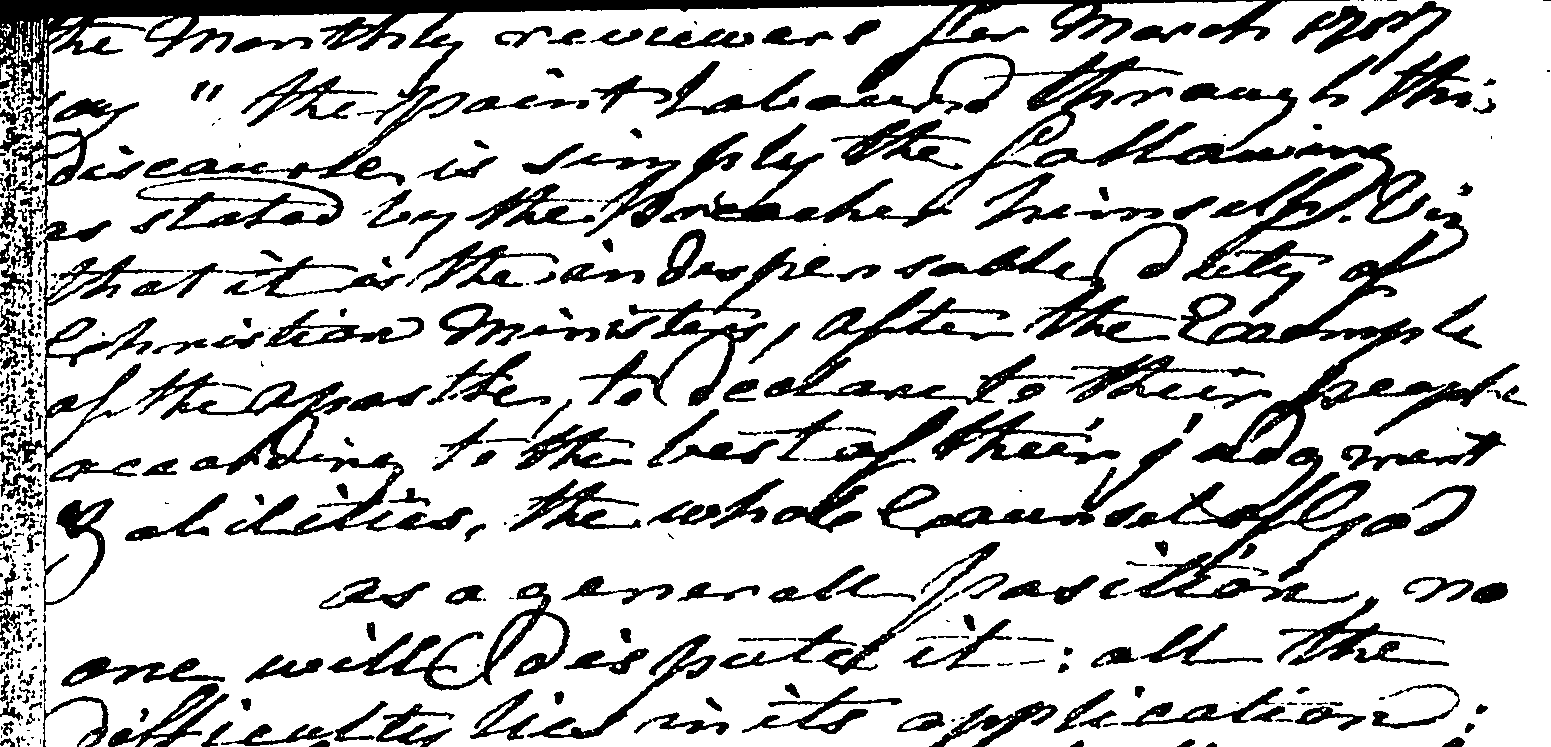 the Monthly reviewers for March 1787
say " the point Laboured through this
discourse, is simply the following
as stated by the Preacher himself. Viz
that it is the indespensable duty of
Christian Ministers, after the Example
of the Apostle, to declare to their people
according to the best of their judgment
& abilities, the whole Counsel of God
as a generall position, no
one will dispute it : all the
difficulty lies in its application :